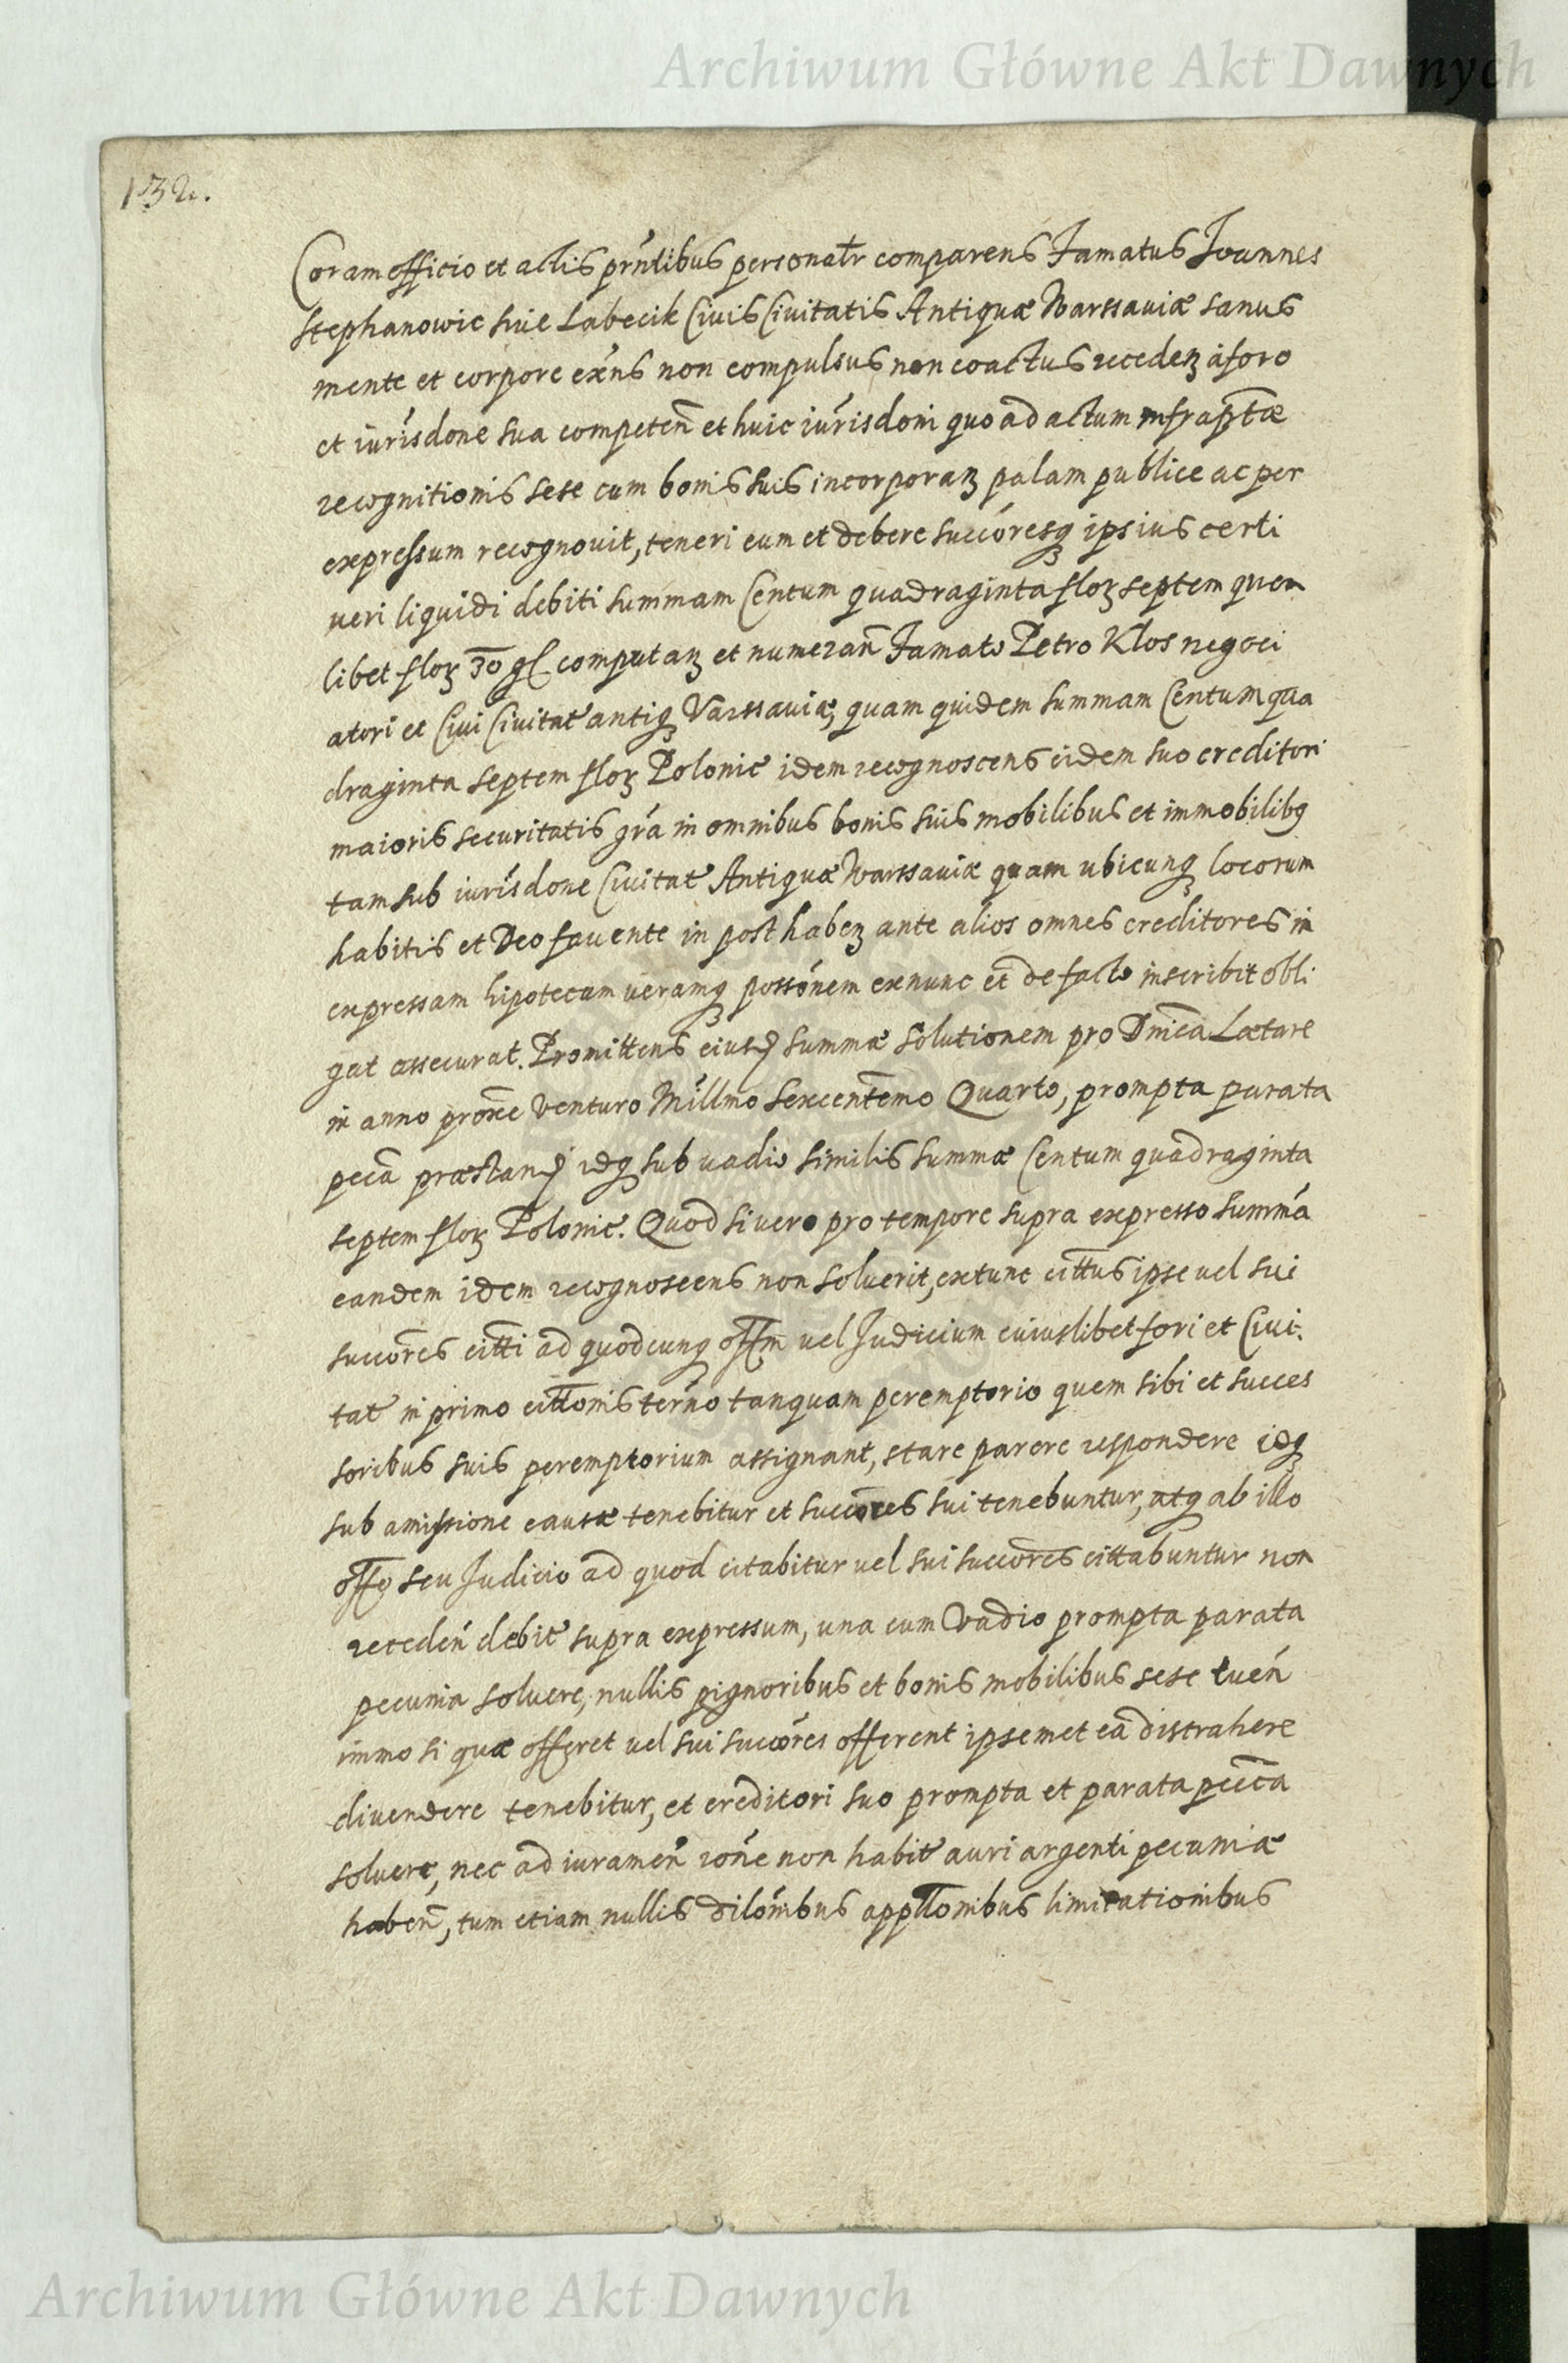 Archiwum Główne Akt Dawnych
132.
Coram officio et actis prńtibus personatr comparens Famatus Joannes
Stephanowic siue Labecik Ciuis Ciuitatis Antiquæ Warssauiæ sanus
mente et corpore exńs non compulsus non coactus recedeȝ à foro
et iurisdone sua competeñ et huic iurisdoni quo ad actum infraptæ
recognitionis sese cum bonis suis incorporaȝ palam publice ac per
expressum recognouit, teneri eum et debere succoresqȝ ipsius certi
ueri liquidi debiti summam Centum quadraginta floȝ septem quem
libet floȝ 30 gl computaȝ et numerañ Famato Petro Klos negoci
atori et Ciui Ciuitat antiqȝ Varssauiæ, quam quidem summam Centum qua
draginta septem floȝ Polonic idem recognoscens eidem suo creditori
maioris securitatis gra in omnibus bonis suis mobilibus et immobilibq
tam sub iurisdone Ciuitat Antiquæ Warssauiæ quam ubicunqȝ locorum
habitis et Deo fauente in post habeȝ ante alios omnes creditores in
expressam hipotecam ueramqȝ possonem exnunc et de facto inscribit obli
gat assecurat. Promittens eiusd summæ solutionem pro Dnica Lætare
in anno proxe venturo Millmo Sexcentemo Quarto, prompta parata
pecã præstand idq sub uadio similis summæ Centum quadraginta
septem floȝ Polonic. Quod si uero pro tempore supra expresso summá
eandem idem recognoscens non soluerit, extunc cittus ipse uel sui
succores citti ad quodcunq offm uel Judicium cuiuslibet fori et Ciui.
tat in primo cittonis terno tanquam peremptorio quem sibi et succes
soribus suis peremptorium assignant, stare parere respondere idqȝ
sub amissione causæ tenebitur et succores sui tenebuntur, atq ab illo
offo seu Judicio ad quod citabitur uel sui succores cittabuntur non
receden debit supra expressum, una cum Vadio prompta parata
pecunia soluere, nullis pignoribus et bonis mobilibus sese tueń
immo si quæ offeret uel sui succores offerent ipsemet ea distrahere
diuendere tenebitur, et creditori suo prompta et parata pecca
soluere, nec ad iurameñ rone non habit auri argenti pecuniæ
habeñ, tum etiam nullis dilonibus appllonibus limitationibus
Archiwum Główne Akt Dawnych